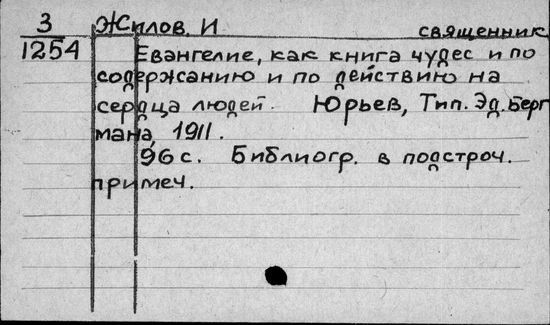 3 Жилов. И священник
1254 Евангелие, как книга чудес и по
содержанию и по действию на
сердца людей. Юрьев, Тип. Эд. Берг
мана, 1911.
96 с. Библиогр. в подстроч.
примеч.